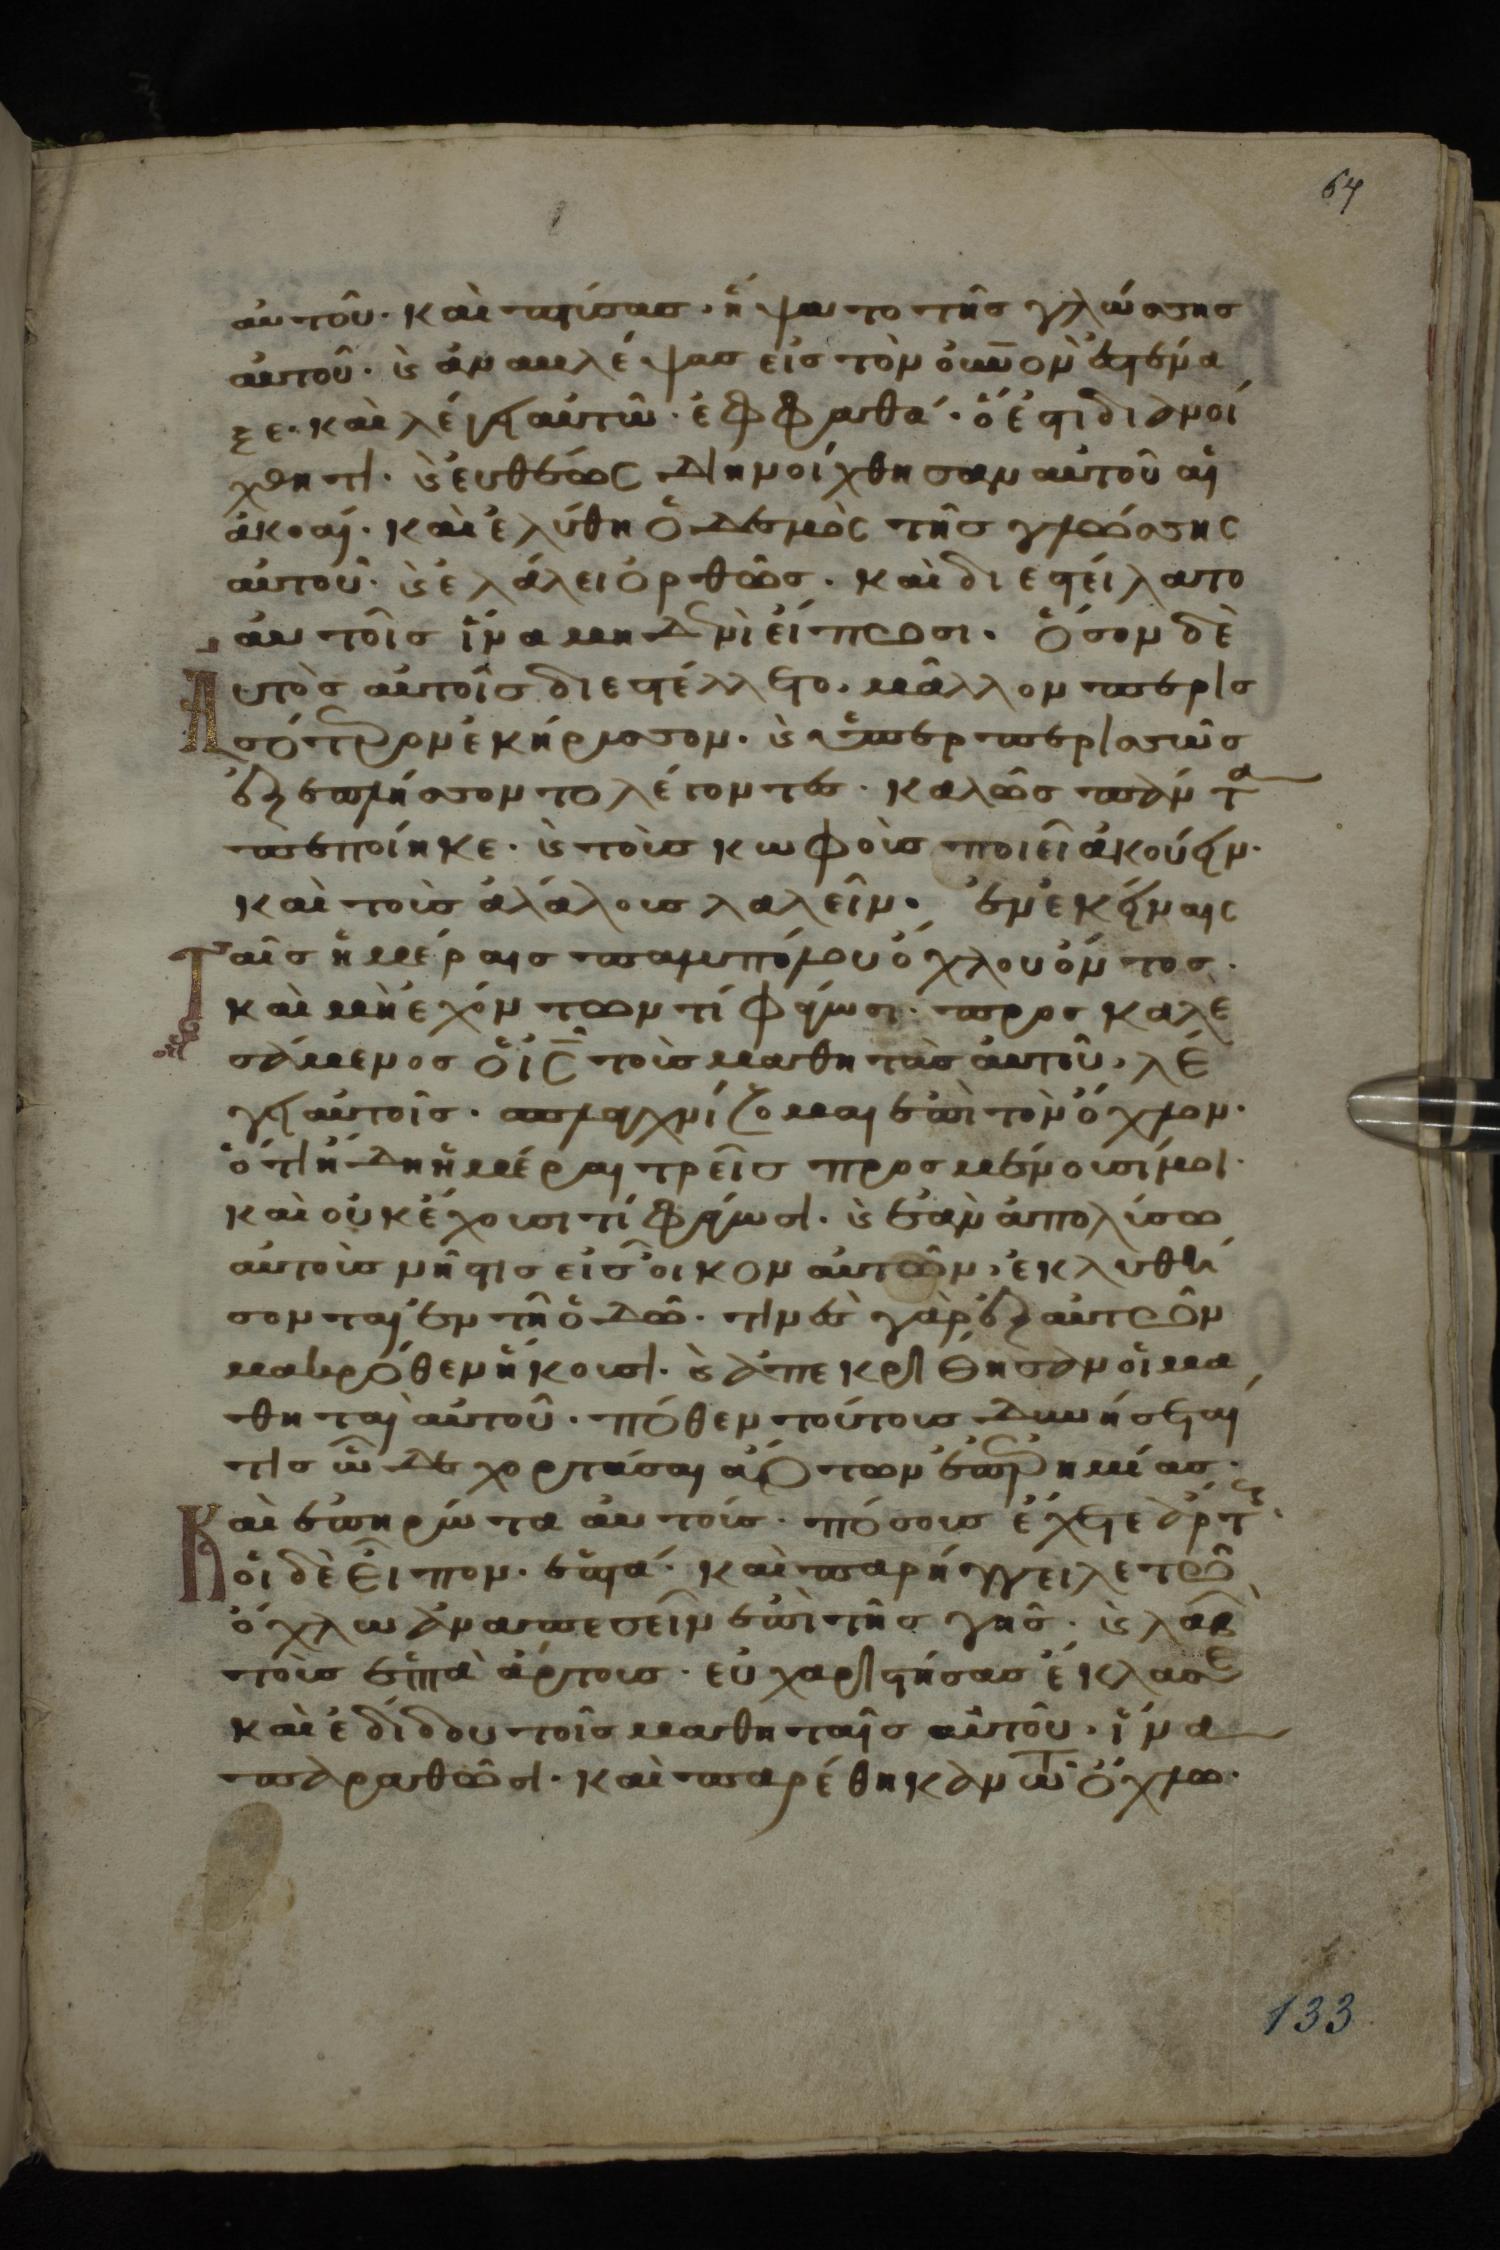 64
αυτοῦ· καὶ πτύσας, ἥψατο τῆς γλώσσης
αυτοῦ· κ ἀναβλέψας εἰς τὸν οὐνὸν ἐστένα
ξε· καὶ λέγει αὐτῶ· ἐφφαθά· ὅ ἐστι διανοί
χθητι· κ εὐθέως διηνοίχθησαν αὐτοῦ αἱ
ἀκοαί· καὶ ἐλύθη ὁ δεσμὸς τῆς γλώσσης
αὐτοῦ· κ ἐλάλει ὀρθῶς· καὶ διεστείλατο
αὐτοῖς ἵνα μηδενὶ εἴπωσι· ὅσον δὲ
Αὐτὸς αὐτοῖς διεστέλλετο, μᾶλλον περισ
σότερον ἐκήρυσσον· κ ὑπερπερισσῶς
ἐξεπλήσσοντο λέγοντες· καλῶς πάντα
πεποίηκε· κ τοὺς κωφοὺς ποιεῖ ἀκούειν·
καὶ τοὺς ἀλάλους λαλεῖν· ἐν ἐκείναις
Ταῖς ἡμέραις παμπόλλου ὄχλου ὄντος·
καὶ μὴ ἐχόντων τί φάγωσι· προσκαλε
σάμενος ὁ ις τοὺς μαθητὰς αὐτοῦ, λέ
γει αὐτοῖς· σπλαγχνίζομαι ἐπὶ τὸν ὄχλον·
ὅτι ἤδη ἡμέραι τρεῖς προσμένουσί μοι·
καὶ οὐκ ἔχουσι τί φάγωσι· κ ἐὰν ἀπολύσω
αὐτοὺς νήστις εἰς οἶκον αὐτῶν, ἐκλυθή
σονται ἐν τῆ ὁδῶ· τινὲς γὰρ ἐξ αὐτῶν
μακρόθεν ἥκουσι· κ ἀπεκρίθησαν οἱ μα
θηταὶ αὐτοῦ· πόθεν τούτους δυνήσεται
τις ὧδε χορτάσαι ἄρτων ἐπ ἐρημίας·
Καὶ ἐπηρώτα αὐτούς· πόσους ἔχετε ἄρτς·
οἱ δὲ εἶπον· ἑπτά· καὶ παρήγγειλε τῶ
ὄχλω ἀναπεσεῖν ἐπὶ τῆς γῆς· κ λαβὼν
τοὺς ἑπτὰ ἄρτους· εὐχαριστήσας ἔκλασε
καὶ ἐδίδου τοῖς μαθηταῖς αὐτοῦ, ἵνα
παραθῶσι· καὶ παρέθηκαν τῶ ὄχλω·
133